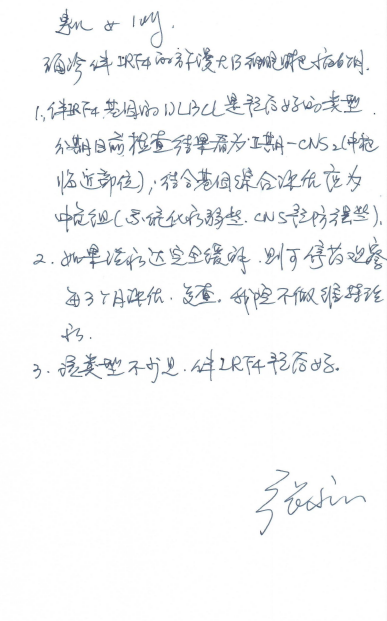 女 10y.
确诊伴IRF4的弥漫大B细胞淋巴瘤6月.
1. 伴IRF4基因的DLBCL是预后好的类型
分期目前检查结果看为Ⅱ期-CNS2(中枢
临近部位), 结合基因综合评估应为
中危组(系统化疗弱些. CNS预防强些).
2. 如果治疗达完全缓解, 则可停药观察
每3个月评估. 复查. 我院不做维持治
疗.
3. 该类型不少见. 伴IRF4预后好.